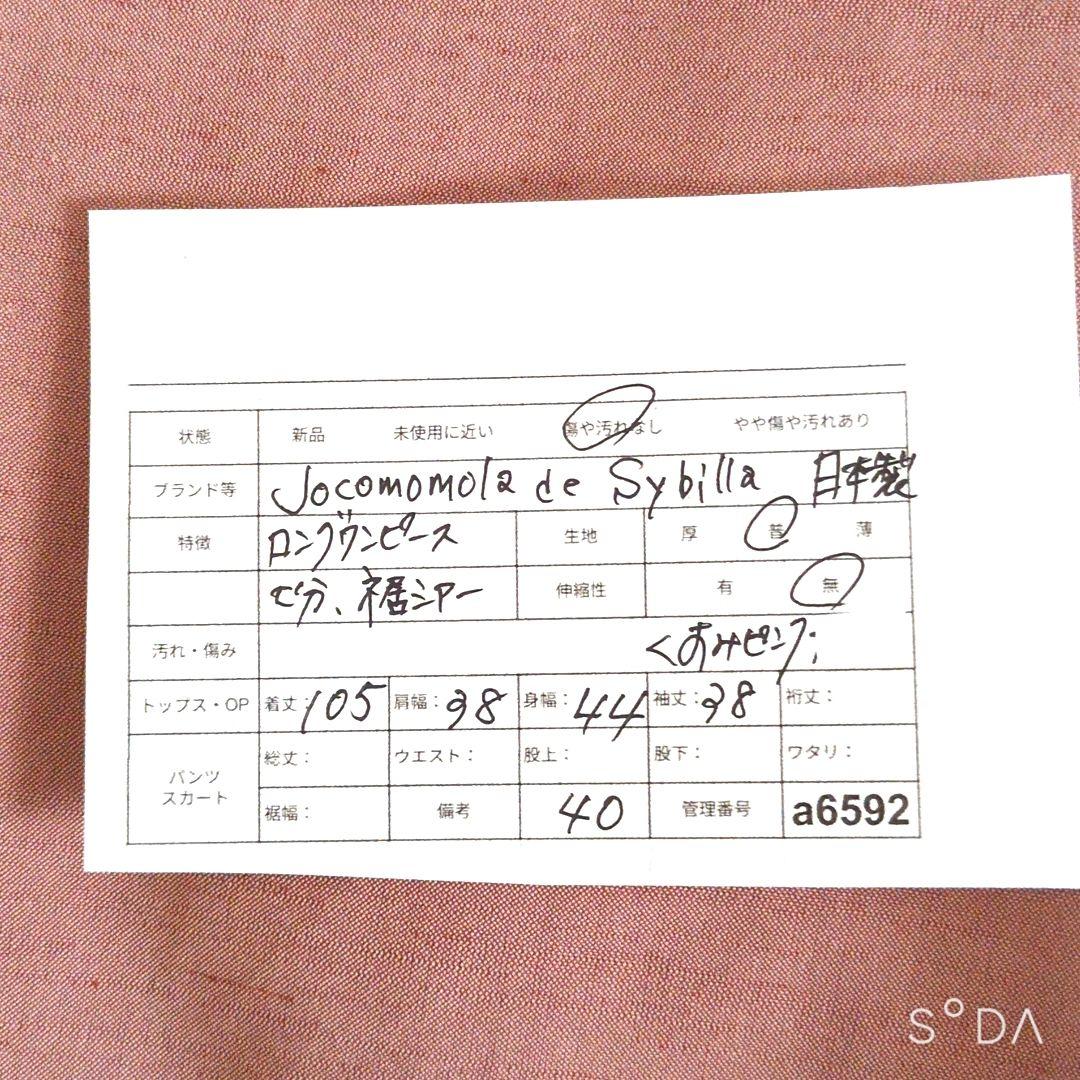 状態 新品 未使用に近い 傷や汚れなし やや傷や汚れあり
ブランド等 Jocomomola de Sybilla 日本製
特徴 ロングワンピース 生地 厚 普 薄
七分、裾シアー 伸縮性 有 無
汚れ・傷み くすみピンク
トップス・OP 着丈:105 肩幅:38 身幅:44 袖丈:38 裄丈:
パンツ スカート 総丈: ウエスト: 股上: 股下: ワタリ:
裾幅: 備考 40 管理番号 a6592
SODA